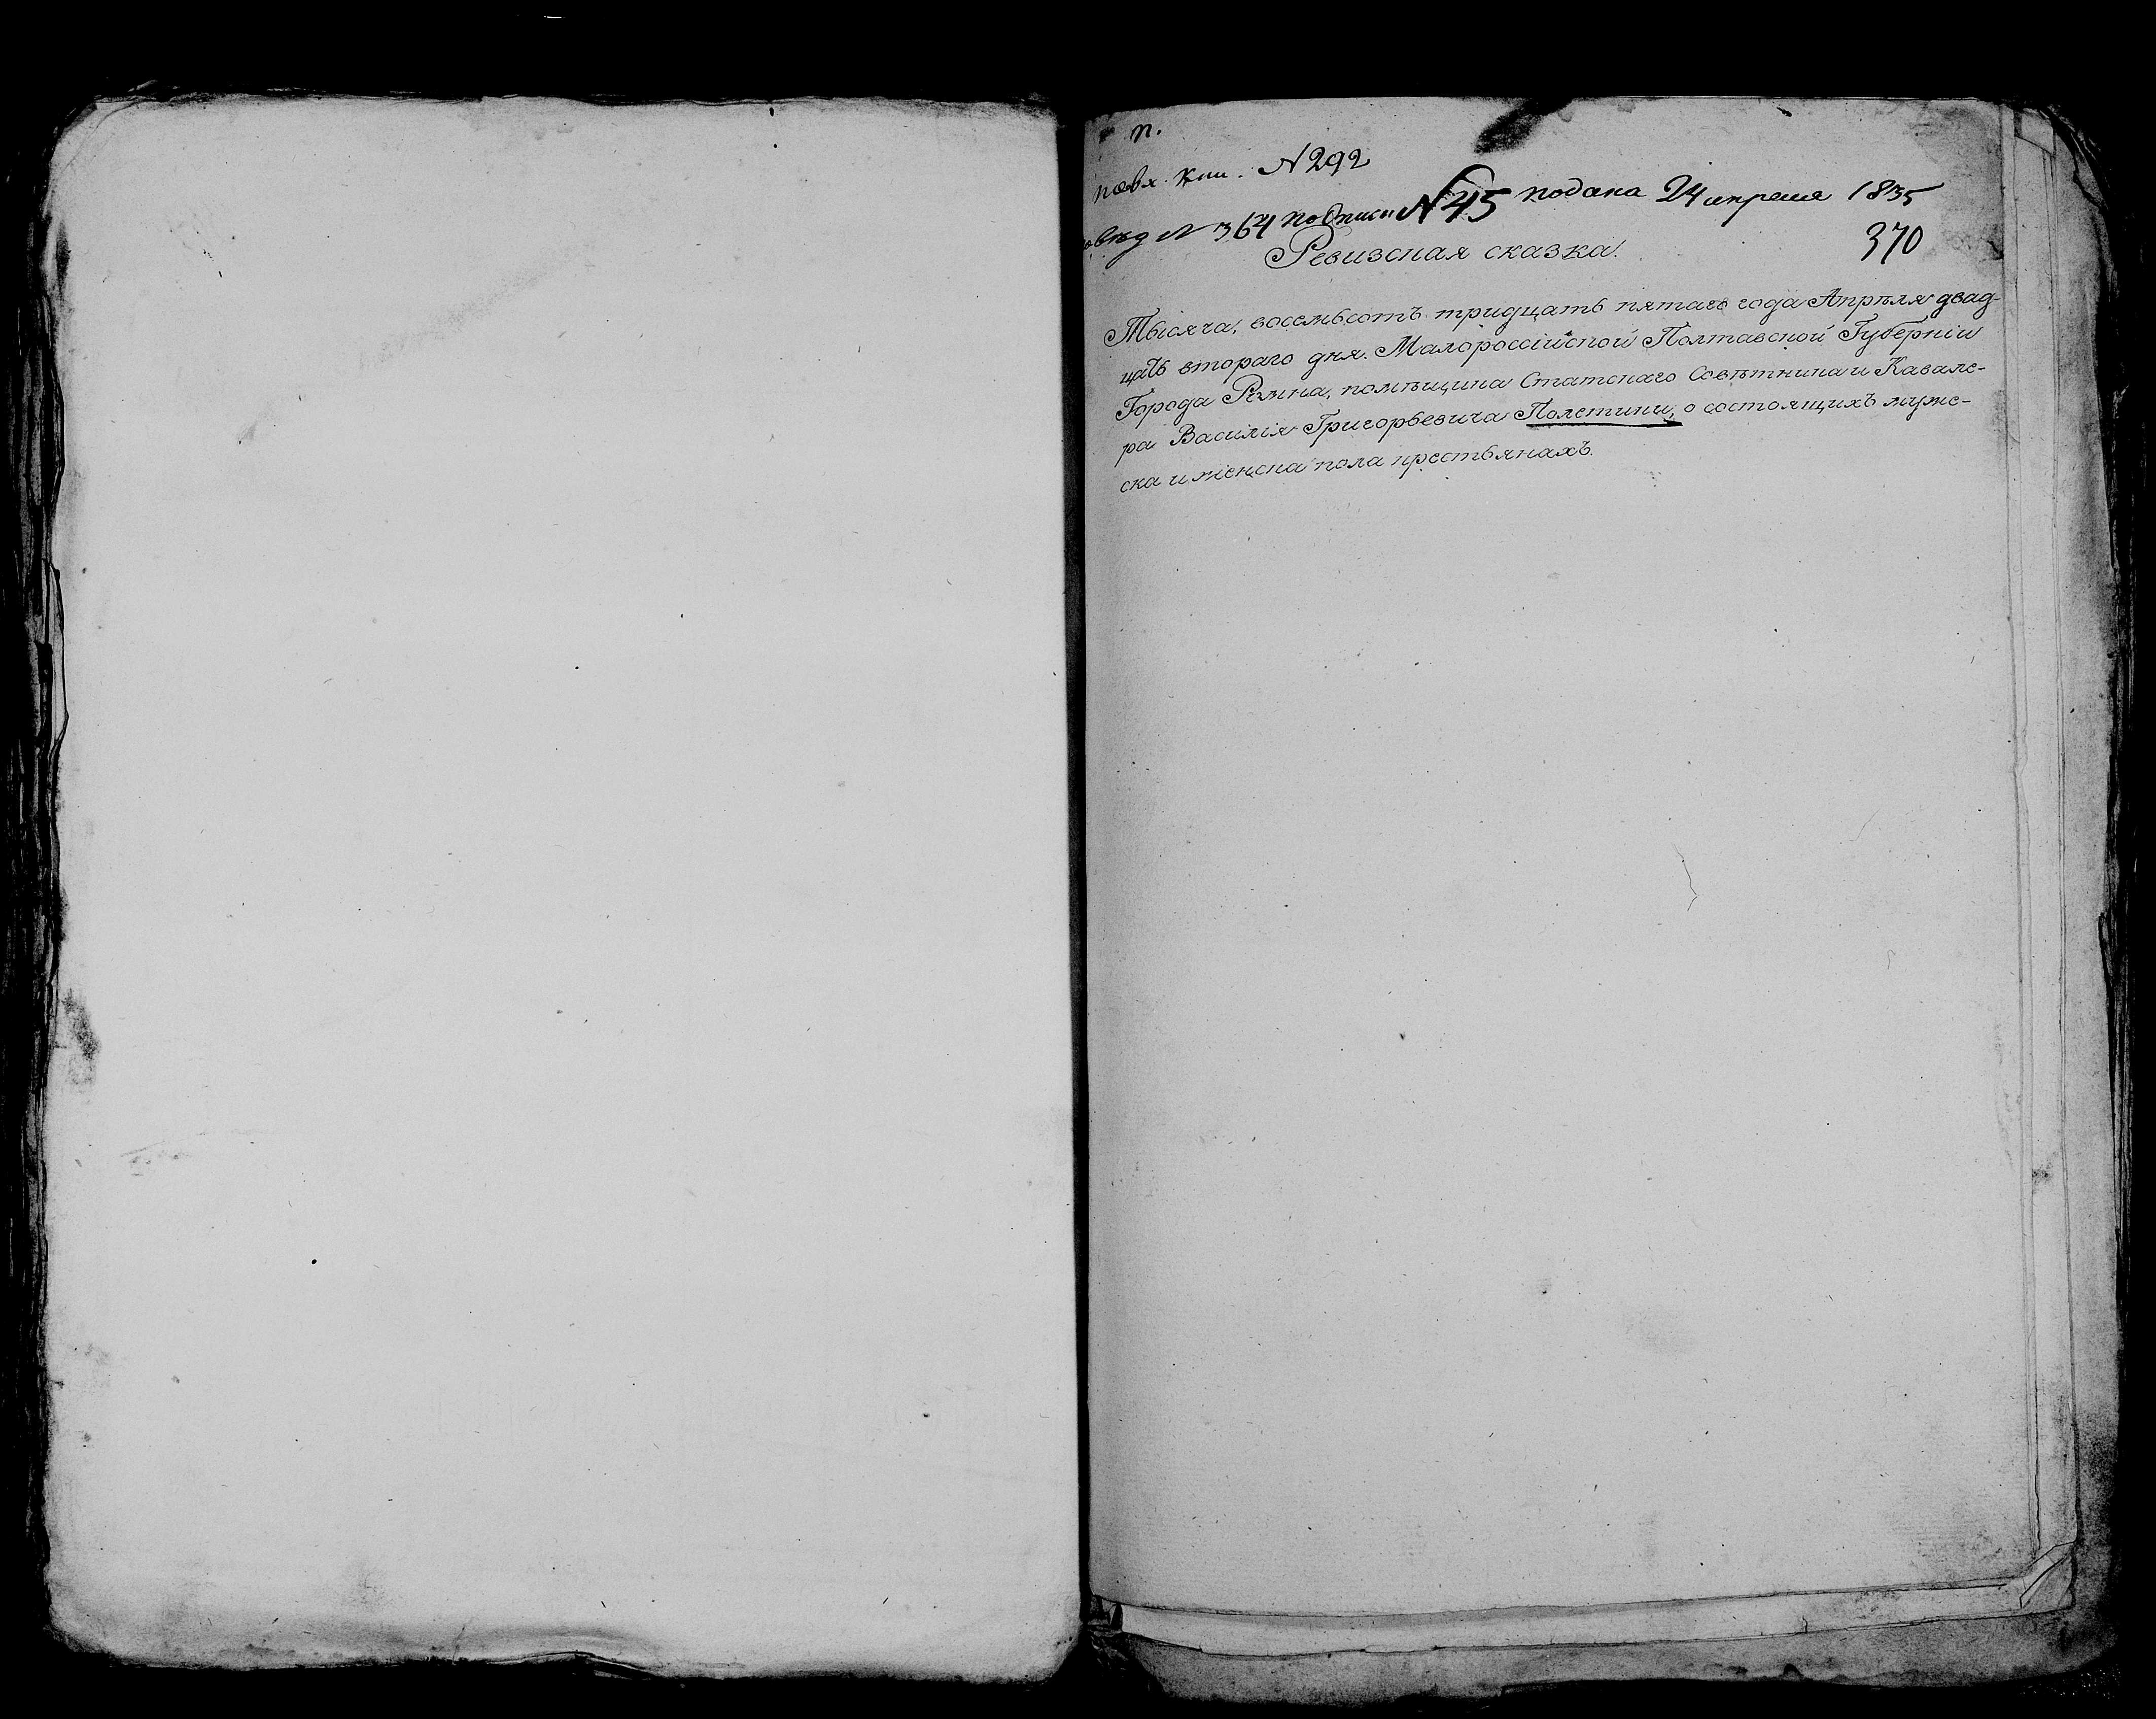 п.
повх. кни. N 292
вѣд N 364 по описи N 45 подана 24 апреля 1835
370
Ревизская сказка.
Тысяча, восемьсотъ тридцать пятаго года Апрѣля двад-
цать втораго дня. Малороссійской Полтавской Губерніи
Города Ромна, помѣщика Статскаго Совѣтника и Кавале-
ра Василія Григорьевича Полетики, о состоящихъ мужс-
ка и женска пола крестьянахъ.